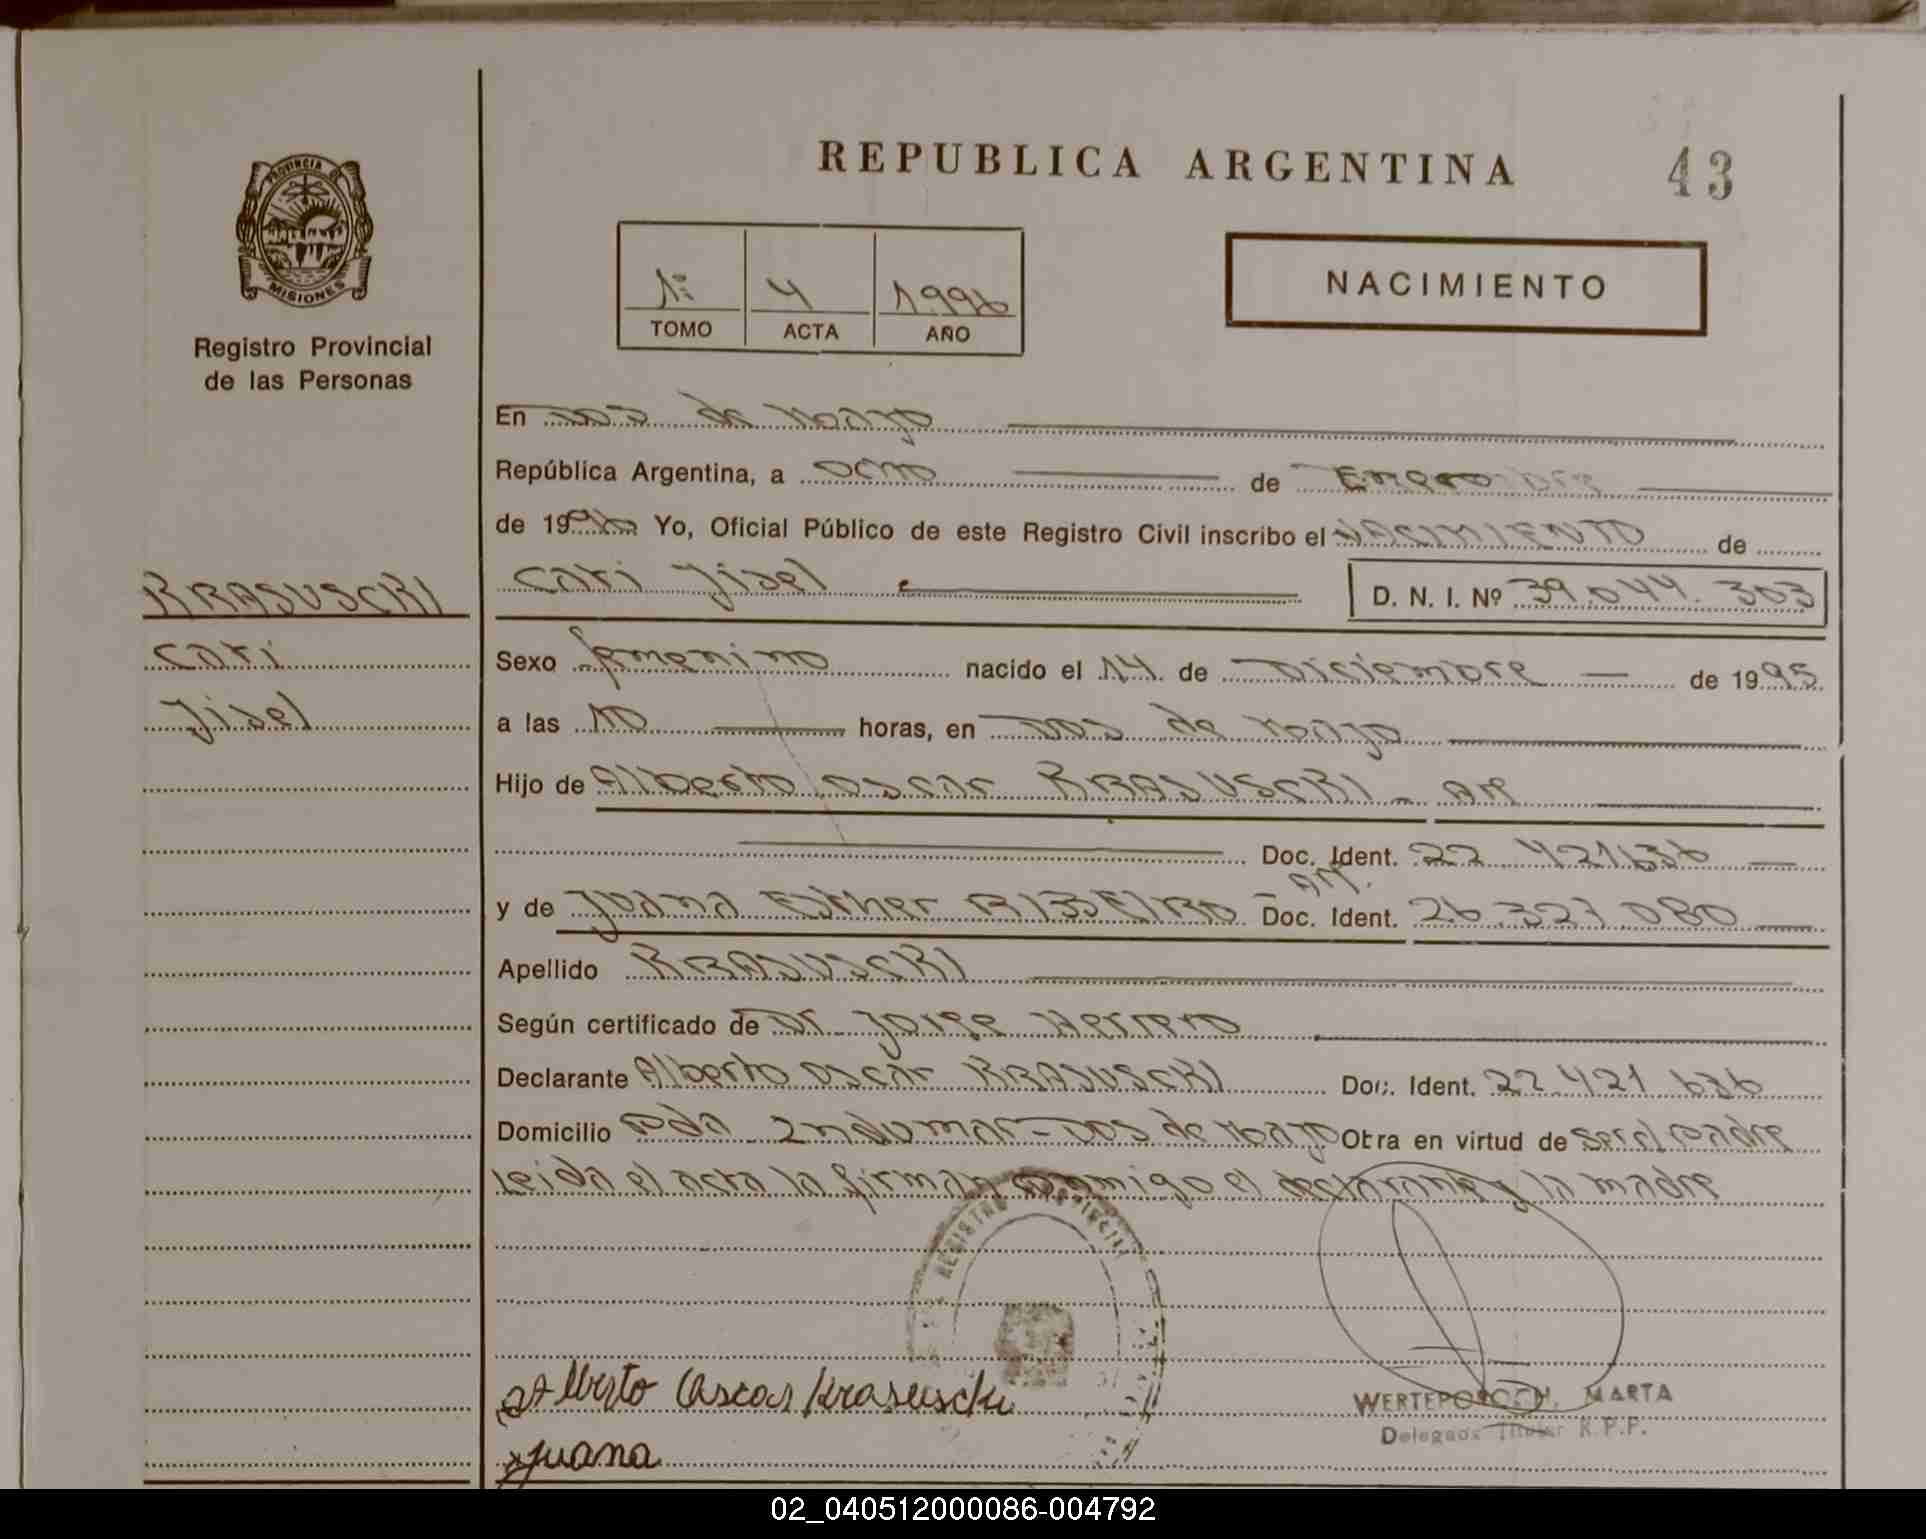 REPUBLICA ARGENTINA
43
PROVINCIA DE
MISIONES
Registro Provincial
de las Personas
1º 4 1996
TOMO ACTA AÑO
NACIMIENTO
En Dos de Mayo
República Argentina, a ocho de Enero
de 1996 Yo, Oficial Público de este Registro Civil inscribo el NACIMIENTO de
KRASUSCKI
Cari Jisel D. N. I. Nº 39.044.303
Cari
Sexo femenino nacido el 14 de Diciembre de 1995
Jisel
a las 10 horas, en Dos de Mayo
Hijo de Alberto Oscar KRASUSCKI - Ar
Doc. Ident. 22 421636
Ar.
y de Juana Esther RIBEIRO Doc. Ident. 26.327.080
Apellido KRASUSCKI
Según certificado de Dr. Jorge Herrero
Declarante Alberto Oscar KRASUSCKI Doc. Ident. 22 421 636
Domicilio Dos de Mayo Otra en virtud de ser el padre
Leida el acta la firman conmigo el declarante y la madre
REGISTRO PROVINCIAL
Alberto Oscar Krasuscki
WERTEPOROCH, MARTA
Delegada Titular R.P.P.
Juana
02_040512000086-004792